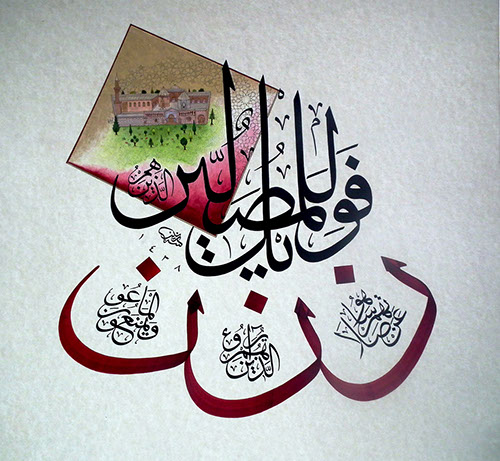 فويل للمصلين
الذين هم
عن صلاتهم ساهون
الذين هم يراءون
ويمنعون الماعون
١٤٣٨